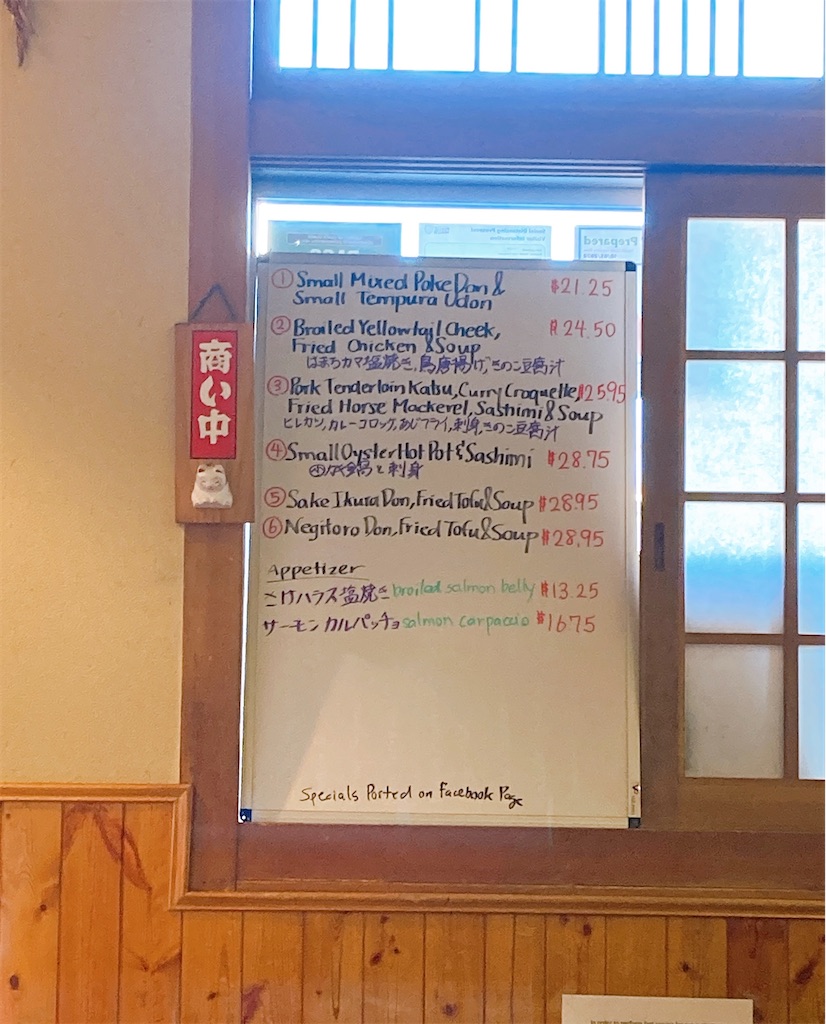 商い中
① Small Mixed Poke Don &
Small Tempura Udon $21.25
② Broiled Yellowtail Cheek, $24.50
Fried Chicken & Soup
はまちカマ塩焼き,鳥唐揚げ,きのこ豆腐汁
③ Pork Tenderloin Katsu, Curry Croquette, $25.95
Fried Horse Mackerel, Sashimi & Soup
ヒレカツ,カレーコロッケ,あじフライ,刺身,きのこ豆腐汁
④ Small Oyster Hot Pot & Sashimi $28.75
鍋と刺身
⑤ Sake Ikura Don, Fried Tofu & Soup $28.95
⑥ Negitoro Don, Fried Tofu & Soup $28.95
Appetizer
さけハラス塩焼き broiled salmon belly $13.25
サーモンカルパッチョ salmon carpaccio $16.75
Specials Posted on Facebook Page